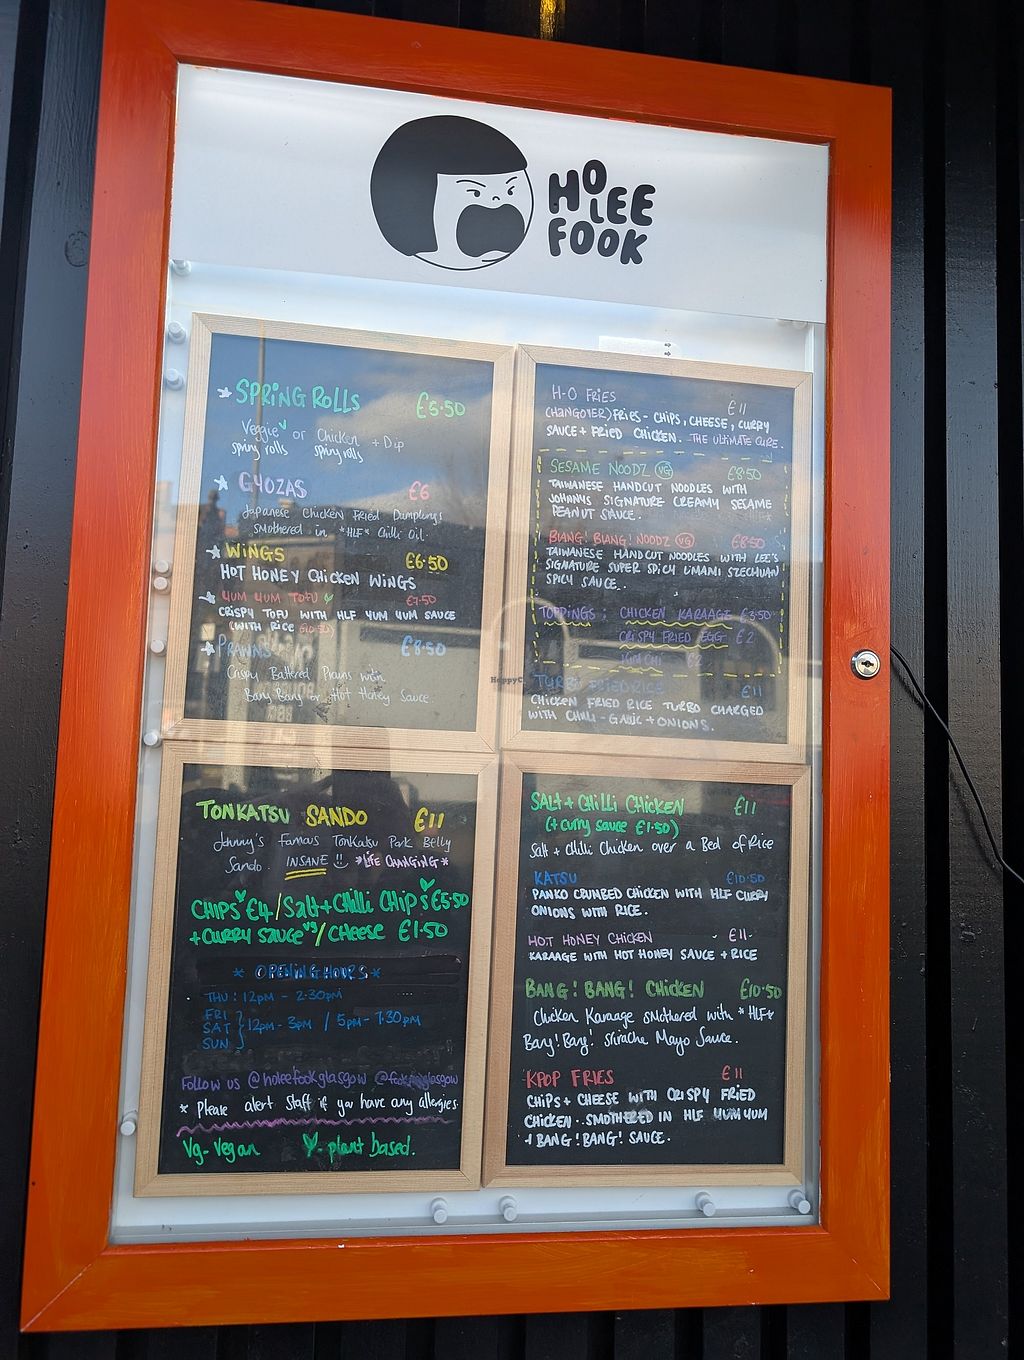 HOLEE
FOOK
SPRING ROLLS £5.50
Veggie or Chicken + Dip
spring rolls spring rolls
GYOZAS £6
Japanese Chicken Fried Dumplings
smothered in *HLF* Chilli Oil.
WINGS £6.50
HOT HONEY CHICKEN WINGS
YUM YUM TOFU £7.50
CRISPY TOFU WITH HLF YUM YUM SAUCE
(WITH RICE
PRAWNS £8.50
Crispy Battered Prawns with
Bang Bang or Hot Honey Sauce.
H-O FRIES £11
(HANGOVER) FRIES - CHIPS, CHEESE, CURRY
SAUCE + FRIED CHICKEN. THE ULTIMATE CURE.
SESAME NOODZ VG £8.50
TAIWANESE HANDCUT NOODLES WITH
JOHNNYS SIGNATURE CREAMY SESAME
PEANUT SAUCE.
BIANG! BIANG! NOODZ VG £8.50
TAIWANESE HANDCUT NOODLES WITH LEE'S
SIGNATURE SUPER SPICY UMAMI SZECHUAN
SPICY SAUCE.
TOPPINGS: CHICKEN KARAAGE £3.50
CRISPY FRIED EGG £2
KIMCHI £2
TURBO FRIED RICE £11
CHICKEN FRIED RICE TURBO CHARGED
WITH CHILLI - GARLIC + ONIONS.
TONKATSU SANDO £11
Johnny's Famous Tonkatsu Pork Belly
Sando. INSANE !! *LIFE CHANGING*
CHIPS £4/Salt+Chilli CHIPS £5.50
+CURRY SAUCE VG/CHEESE £1.50
* OPENING HOURS *
THU: 12PM - 2:30PM
FRI
SAT } 12PM - 3PM / 5PM - 7.30PM
SUN
Follow us @holeefookglasgow
* Please alert staff if you have any allergies.
Vg-Vegan - plant based.
SALT + CHILLI CHICKEN £11
(+ curry sauce £1.50)
Salt + Chilli Chicken over a Bed of Rice
KATSU £10.50
PANKO CRUMBED CHICKEN WITH HLF CURRY
ONIONS WITH RICE.
HOT HONEY CHICKEN - £11.
KARAAGE WITH HOT HONEY SAUCE + RICE
BANG! BANG! CHICKEN £10.50
Chicken Karaage smothered with *HLF*
Bang! Bang! Sriracha Mayo Sauce.
KPOP FRIES £11
CHIPS + CHEESE WITH CRISPY FRIED
CHICKEN. SMOTHERED IN HLF YUM YUM
+ BANG! BANG! SAUCE.